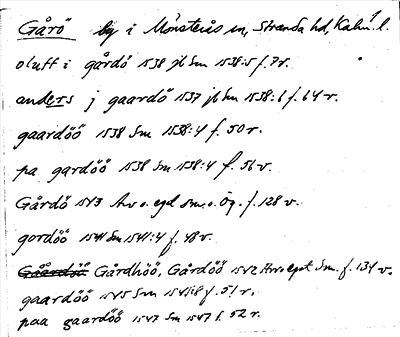 Gårö by i Mönsterås sn, Stranda hd, Kalm. l.
oluff i gårdö 1538 jb Sm 1538:5 f. 7r.
anders j gaardö 1537 jb Sm 1538:6 f. 64r.
gaardöö 1538 Sm 1538:4 f. 50r.
pa gardöö 1538 Sm 1538:4 f. 56v.
Gårdö 1543 Arv o. egd sm. o. Ög. f. 128 v.
gordöö 1541 Sm 1541:4 f. 48v.
Gåårdöö Gårdhöö, Gårdöö 1542 Arv o egot Sm. f. 134 v.
gaardöö 1545 Sm 1545:8 f. 51r.
paa gaardöö 1547 Sm 1547 f. 52r.